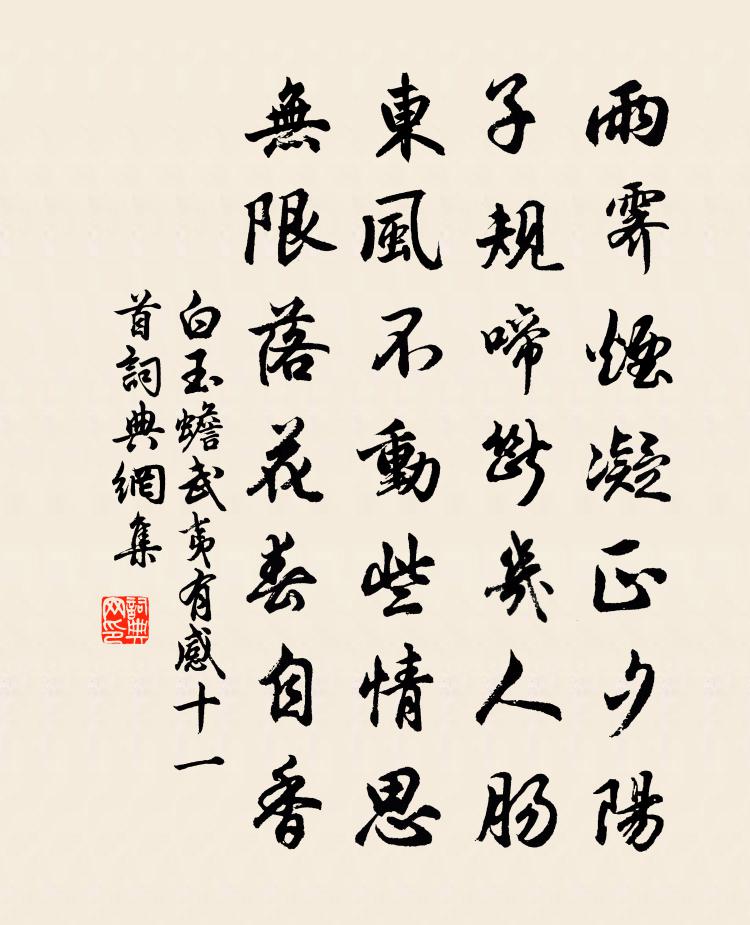 雨霽煙凝正夕陽
子規啼斷幾人腸
東風不動些情思
無限落花春自香
白玉蟾武夷有感十一
首詞典網集
詞典
网印